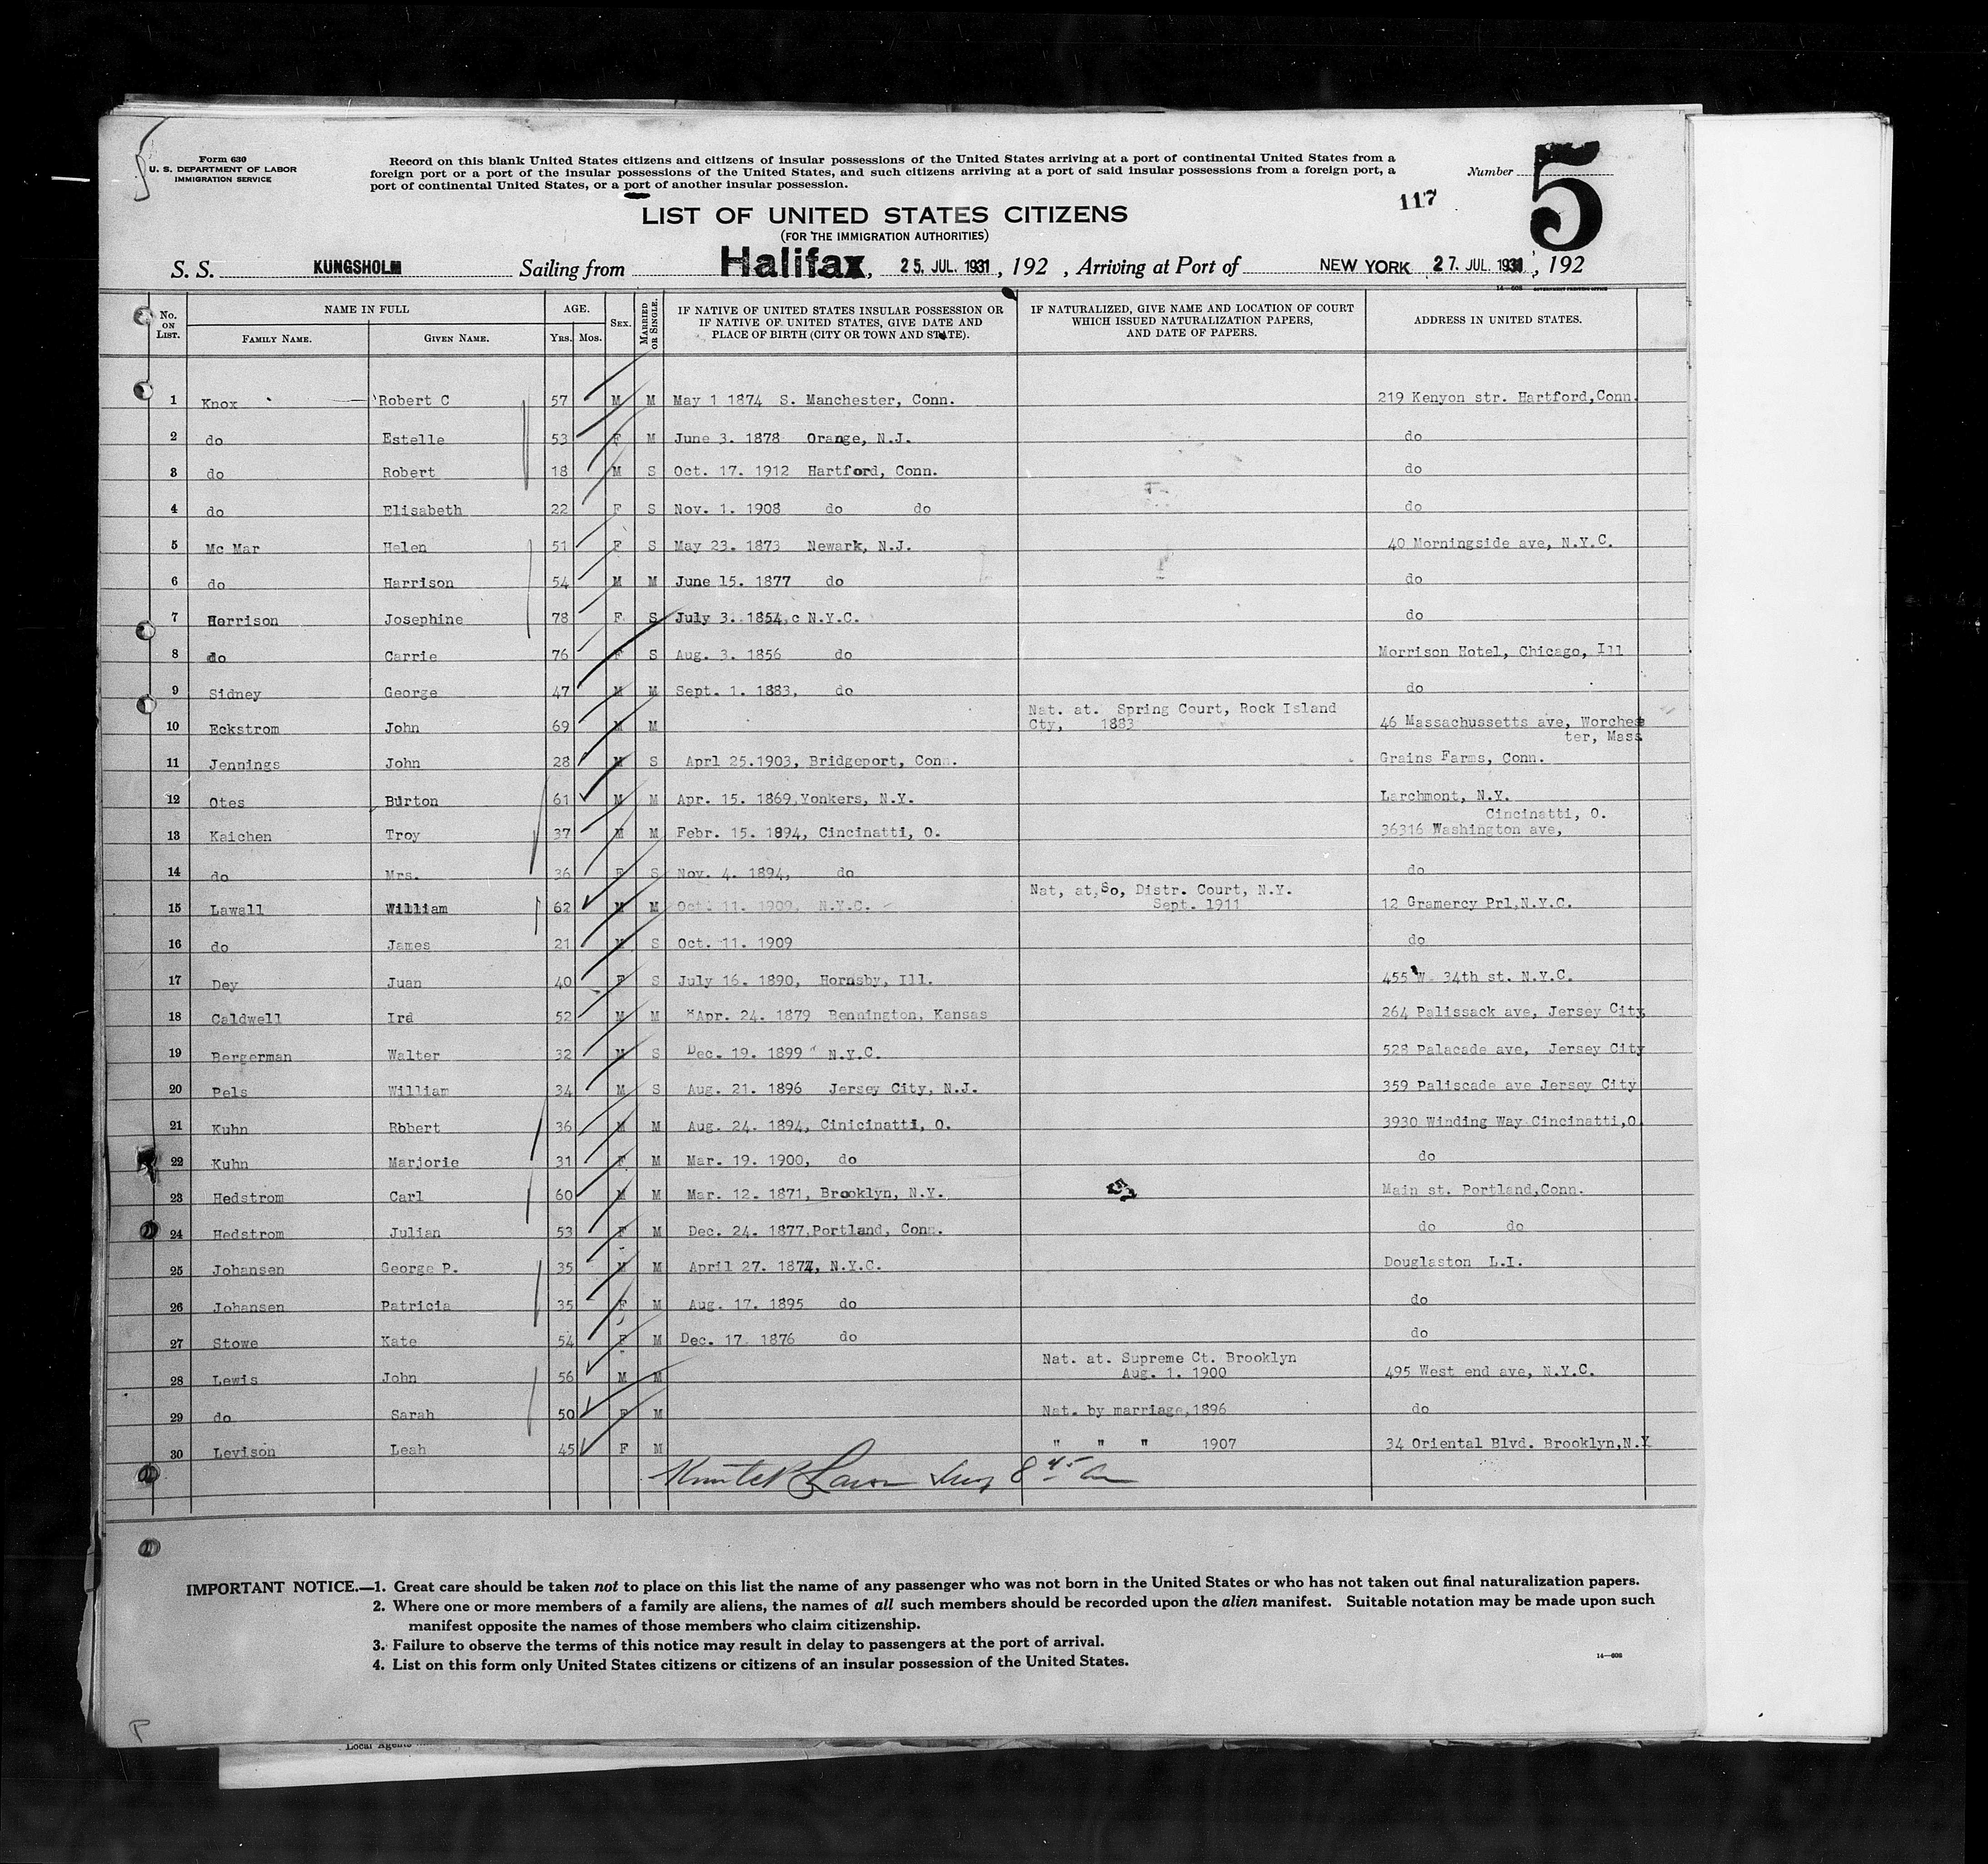 Form 630
U. S. DEPARTMENT OF LABOR
IMMIGRATION SERVICE
Record on this blank United States citizens and citizens of insular possessions of the United States arriving at a port of continental United States from a
foreign port or a port of the insular possessions of the United States, and such citizens arriving at a port of said insular possessions from a foreign port, a
port of continental United States, or a port of another insular possession.
Number 5
117
LIST OF UNITED STATES CITIZENS
(FOR THE IMMIGRATION AUTHORITIES)
S. S. KUNGSHOLM Sailing from Halifax, 25. JUL. 1931, 192 , Arriving at Port of NEW YORK 27. JUL. 1931, 192
14—608 GOVERNMENT PRINTING OFFICE
No. ON LIST. NAME IN FULL FAMILY NAME. GIVEN NAME. AGE. YRS. MOS. SEX. MARRIED OR SINGLE. IF NATIVE OF UNITED STATES INSULAR POSSESSION OR IF NATIVE OF UNITED STATES, GIVE DATE AND PLACE OF BIRTH (CITY OR TOWN AND STATE). IF NATURALIZED, GIVE NAME AND LOCATION OF COURT WHICH ISSUED NATURALIZATION PAPERS, AND DATE OF PAPERS. ADDRESS IN UNITED STATES.
1 Knox Robert C 57 M M May 1 1874 S. Manchester, Conn. 219 Kenyon str. Hartford,Conn.
2 do Estelle 53 F M June 3. 1878 Orange, N.J. do
3 do Robert 18 M S Oct. 17. 1912 Hartford, Conn. do
4 do Elisabeth 22 F S Nov. 1. 1908 do do do
5 Mc Mar Helen 51 F S May 23. 1873 Newark, N.J. 40 Morningside ave, N.Y.C.
6 do Harrison 54 M M June 15. 1877 do do
7 Herrison Josephine 78 F S July 3. 1854, c N.Y.C. do
8 do Carrie 76 F S Aug. 3. 1856 do Morrison Hotel, Chicago, Ill
9 Sidney George 47 M M Sept. 1. 1883, do do
10 Eckstrom John 69 M M Nat. at. Spring Court, Rock Island Cty, 1883 46 Massachussetts ave, Worches ter, Mass
11 Jennings John 28 M S Aprl 25.1903, Bridgeport, Conn. Grains Farms, Conn.
12 Otes Burton 61 M M Apr. 15. 1869,Yonkers, N.Y. Larchmont, N.Y.
13 Kaichen Troy 37 M M Febr. 15. 1894, Cincinatti, O. 36316 Washington ave, Cincinatti, O.
14 do Mrs. 36 F S Nov. 4. 1894, do do
15 Lawall William 62 M M Oct. 11. 1909, N.Y.C. Nat, at,So, Distr. Court, N.Y. Sept. 1911 12 Gramercy Prl,N.Y.C.
16 do James 21 M S Oct. 11. 1909 do
17 Dey Juan 40 F S July 16. 1890, Hornsby, Ill. 455 W. 34th st. N.Y.C.
18 Caldwell Ird 52 M M "Apr. 24. 1879 Bennington, Kansas 264 Palissack ave, Jersey City
19 Bergerman Walter 32 M S Dec. 19. 1899 N.Y.C. 528 Palacade ave, Jersey City
20 Pels William 34 M S Aug. 21. 1896 Jersey City, N.J. 359 Paliscade ave Jersey City
21 Kuhn Robert 36 M M Aug. 24. 1894, Cinicinatti, O. 3930 Winding Way Cincinatti,O.
22 Kuhn Marjorie 31 F M Mar. 19. 1900, do do
23 Hedstrom Carl 60 M M Mar. 12. 1871, Brooklyn, N.Y. Main st. Portland,Conn.
24 Hedstrom Julian 53 F M Dec. 24. 1877,Portland, Conn. do do
25 Johansen George P. 35 M M April 27. 1877, N.Y.C. Douglaston L.I.
26 Johansen Patricia 35 F M Aug. 17. 1895 do do
27 Stowe Kate 54 F M Dec. 17. 1876 do do
28 Lewis John 56 M M Nat. at. Supreme Ct. Brooklyn Aug. 1. 1900 495 West end ave, N.Y.C.
29 do Sarah 50 F M Nat. by marriage,1896 do
30 Levison Leah 45 F M " " " 1907 34 Oriental Blvd. Brooklyn,N.Y
8 45
IMPORTANT NOTICE.—1. Great care should be taken not to place on this list the name of any passenger who was not born in the United States or who has not taken out final naturalization papers.
2. Where one or more members of a family are aliens, the names of all such members should be recorded upon the alien manifest. Suitable notation may be made upon such
manifest opposite the names of those members who claim citizenship.
3. Failure to observe the terms of this notice may result in delay to passengers at the port of arrival.
4. List on this form only United States citizens or citizens of an insular possession of the United States.
14—608
P
Local Agents